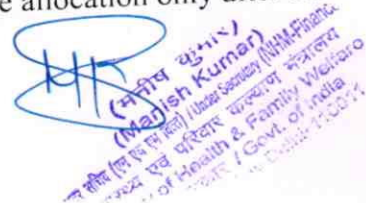 e allocation only
(मनीष कुमार)
(Manish Kumar)
सचिव (एन एच एम वित्त) / Under Secretary (NHM-Finance
स्वास्थ्य एवं परिवार कल्याण मंत्रालय
of Health & Family Welfare
/ Govt. of India
Delhi-110011